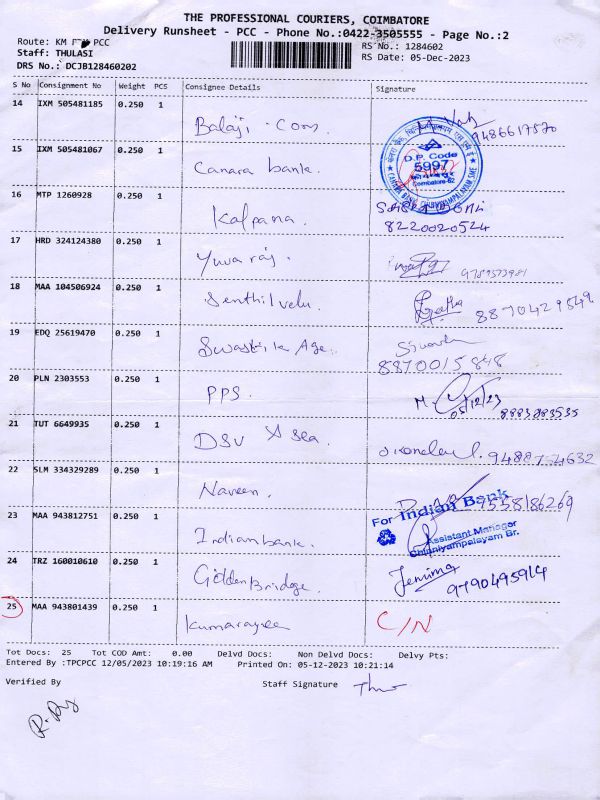 THE PROFESSIONAL COURIERS, COIMBATORE
Delivery Runsheet - PCC - Phone No.:0422-3505555 - Page No.:2
Route: KM PCC
RS No.: 1284602
Staff: THULASI
RS Date: 05-Dec-2023
DRS No.: DCJB128460202
S No Consignment No Weight PCS Consignee Details Signature
14 IXM 505481185 0.250 1 Balaji Coos.
9486617520
15 IXM 505481067 0.250 1 Canara bank.
D.P. Code
5997
Coimbatore-62
16 MTP 1260928 0.250 1 Kalpana.
8220020524
17 HRD 324124380 0.250 1 Yuvaraj.
9789573981
18 MAA 104506924 0.250 1 Senthilvelu.
8870429549
19 EDQ 25619470 0.250 1 Swastika Age.
8870015848
20 PLN 2303553 0.250 1 PPS.
05/12/23
8883883535
21 TUT 6649935 0.250 1 DSV Asea.
22 SLM 334329289 0.250 1 Naveen.
9558186269
23 MAA 943812751 0.250 1 Indianbank.
For Indian Bank
Assistant Manager
Chinniyampalayam Br.
24 TRZ 160010610 0.250 1 GoldenBridge.
Jemima
9790495914
25 MAA 943801439 0.250 1 Kumarayee
C/N
Tot Docs: 25 Tot COD Amt: 0.00 Delvd Docs: Non Delvd Docs: Delvy Pts:
Entered By :TPCPCC 12/05/2023 10:19:16 AM Printed On: 05-12-2023 10:21:14
Verified By Staff Signature